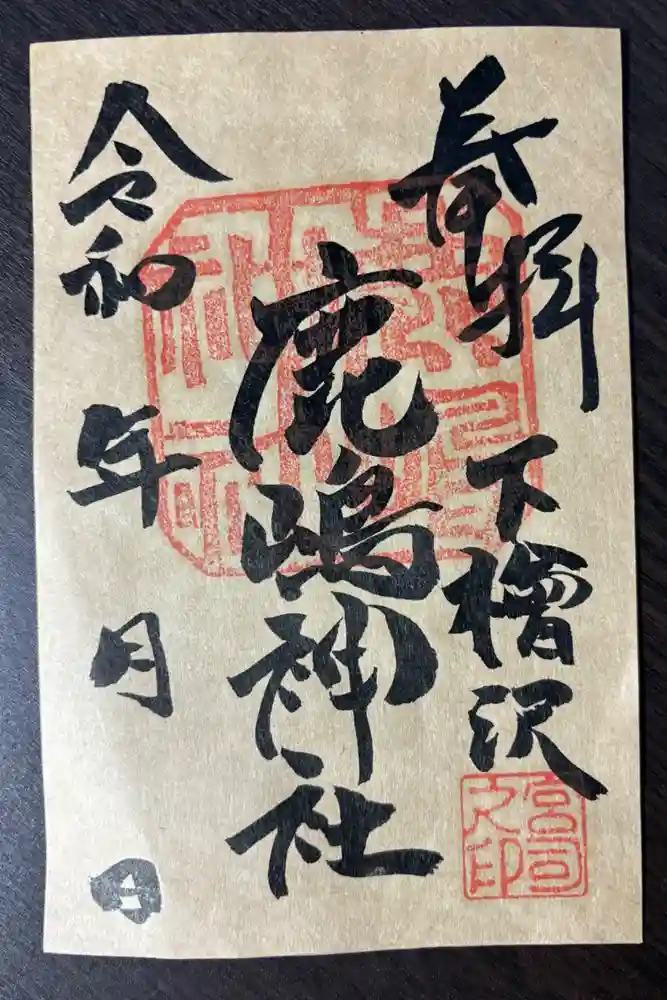 奉拝
下檜沢
鹿嶋神社
令和 年 月 日
鹿嶋神社
宮司之印